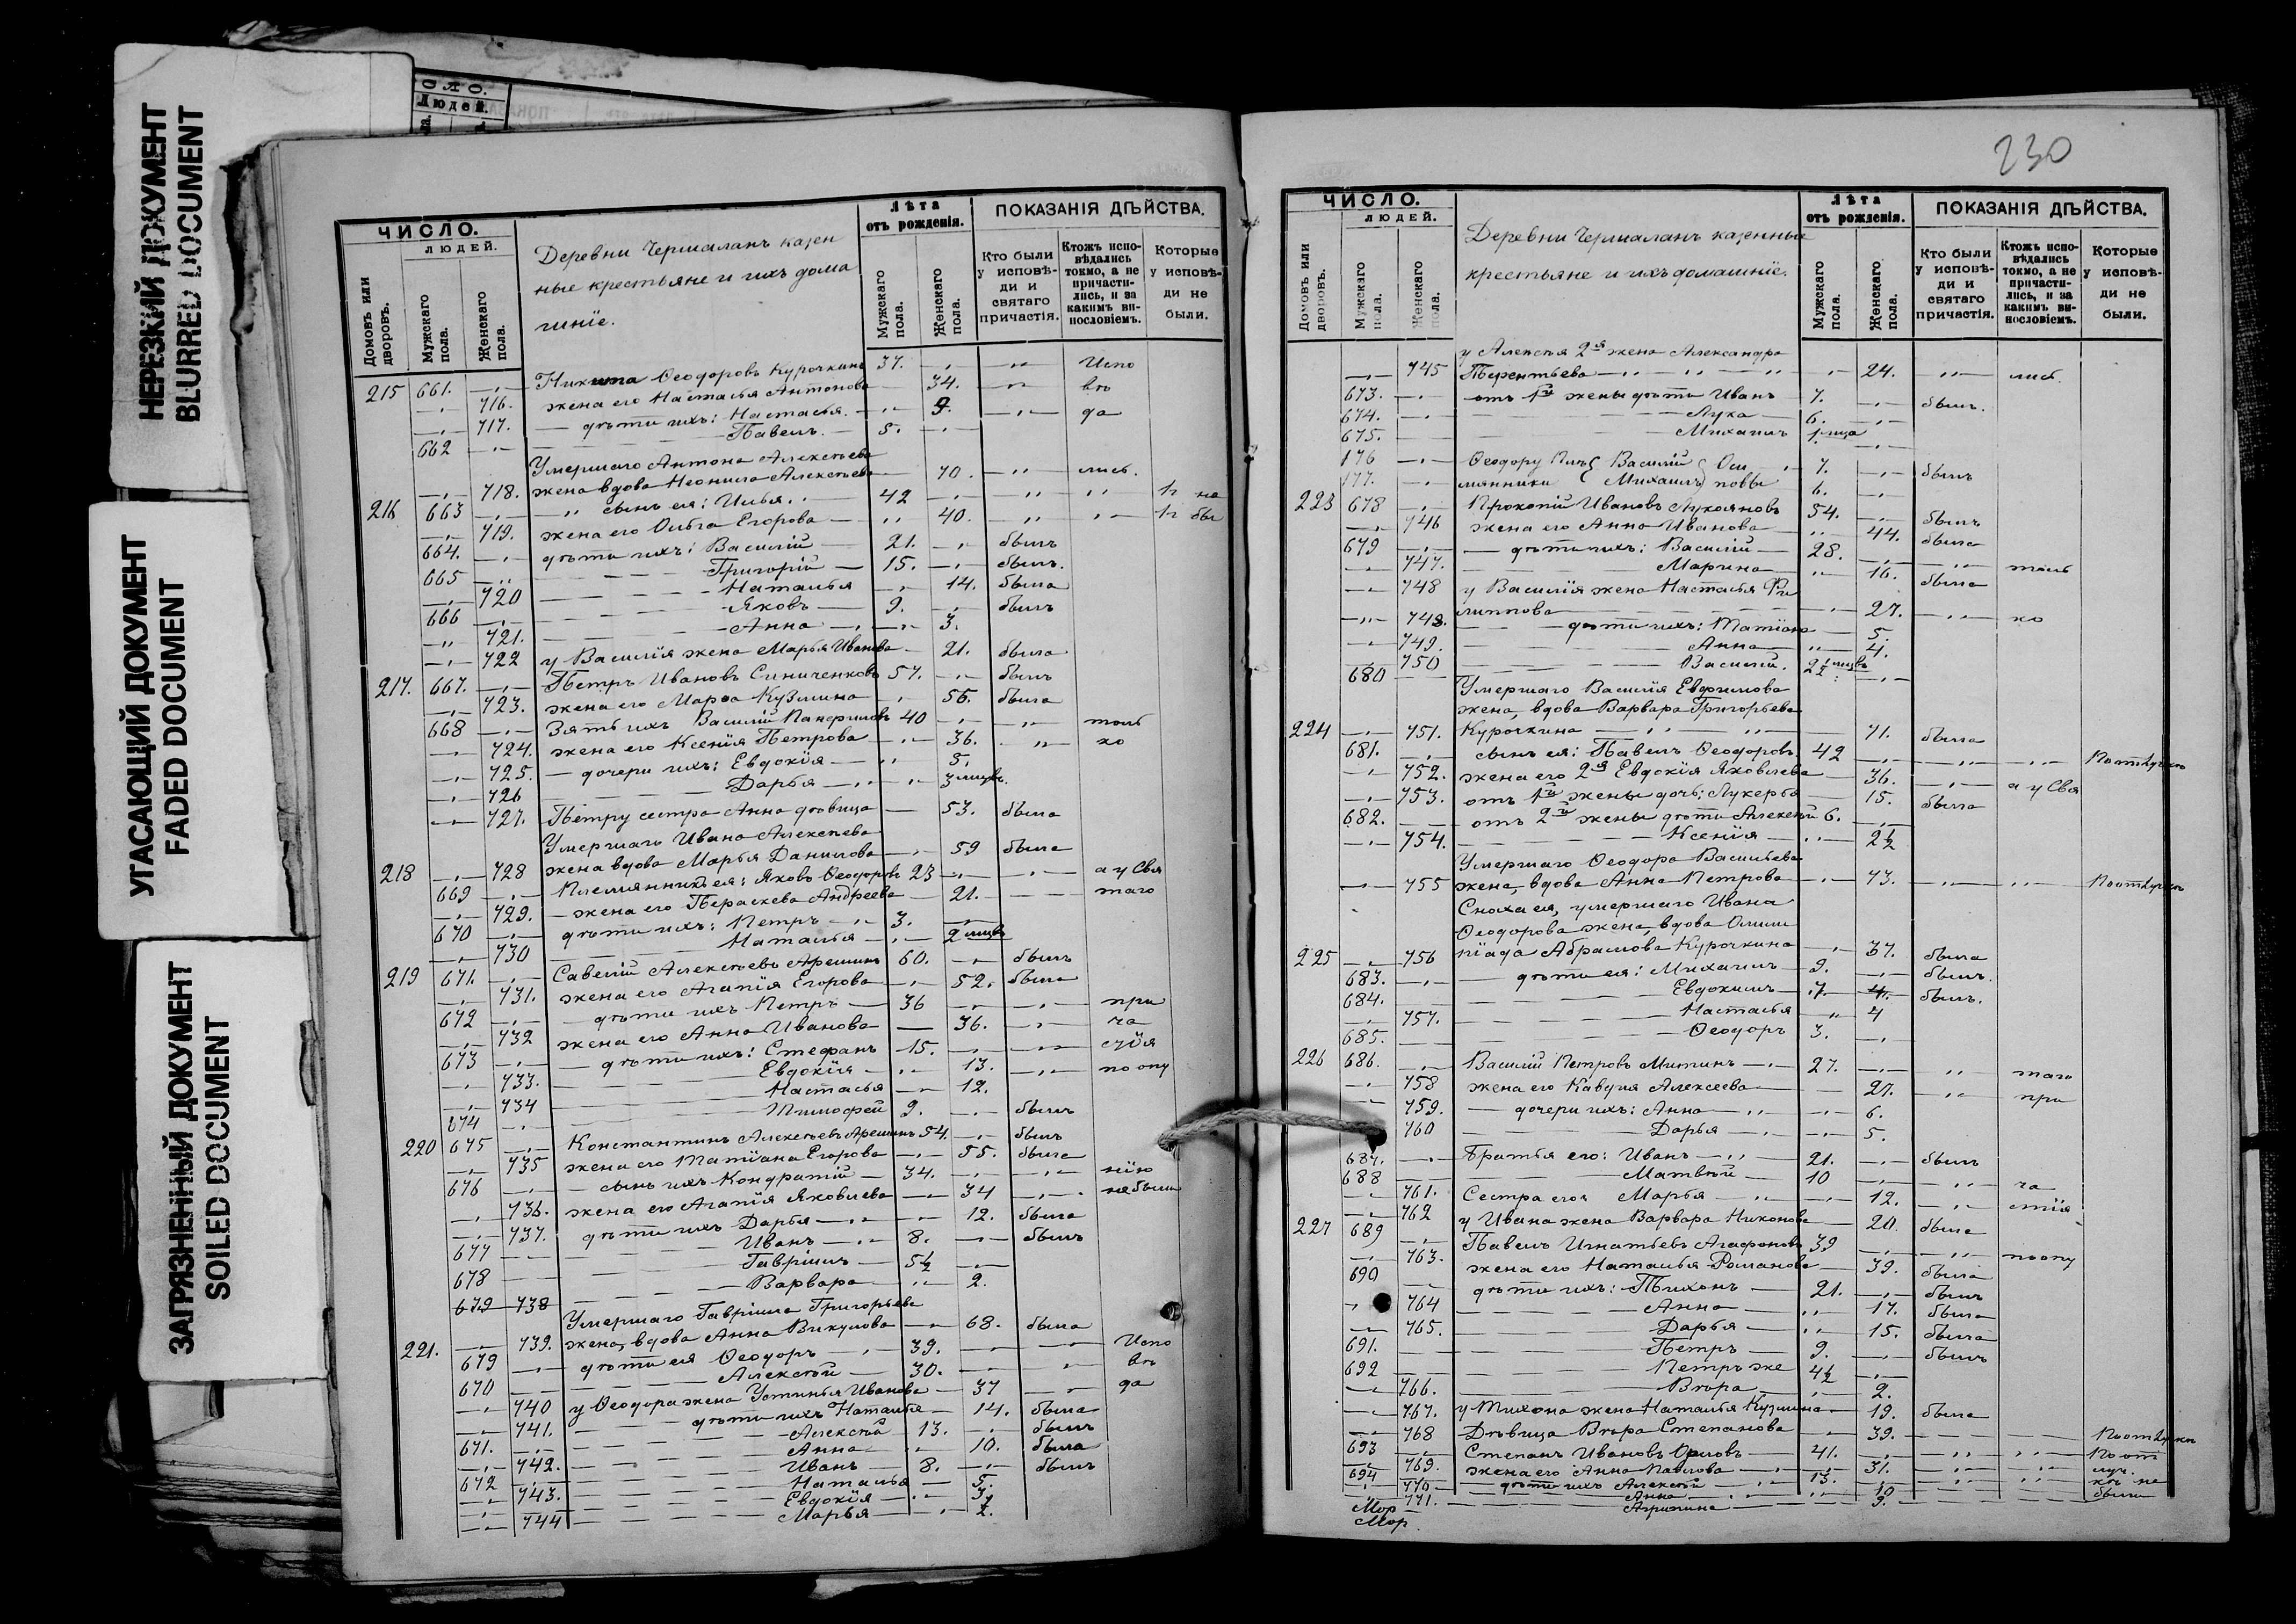 НЕРЕЗКИЙ ДОКУМЕНТ
BLURRED DOCUMENT
УГАСАЮЩИЙ ДОКУМЕНТ
FADED DOCUMENT
ЗАГРЯЗНЕННЫЙ ДОКУМЕНТ
SOILED DOCUMENT
Людей.
ЧИСЛО.
ЛЮДЕЙ.
Домовъ или дворовъ.
Мужскаго пола.
Женскаго пола.
Деревни Чермаланъ казен
ные крестьяне и ихъ дома
шніе.
Лѣта
отъ рожденія.
Мужскаго пола.
Женскаго пола.
ПОКАЗАНІЯ ДѢЙСТВА.
Кто были у исповѣди и святаго причастія.
Ктожъ исповѣдались токмо, а не причастились, и за какимъ винословіемъ.
Которые у исповѣди не были.
215 661. Никита Ѳеодоровъ Курочкинъ 37. Испо
716. жена его Настасья Антонова 34. вѣ
717. дѣти ихъ: Настасья. 9. да
662 Павелъ. 5.
Умершаго Антона Алексѣева
718. жена вдова Неонила Алексѣева 70. лись.
216 663 сынъ ея: Илья. 42 не
719. жена его Ольга Егорова 40. бы
664. дѣти ихъ: Василій 21. былъ
665 Григорій 15. былъ.
720 Наталья 14. была
666 Яковъ 9. былъ
721. Анна 3.
722 у Василія жена Марья Иванова 21. была
217. 667. Петръ Ивановъ Синиченковъ 57. былъ
723. жена его Марѳа Кузмина 56. была
668 Зять ихъ Василій 40 толь
724. жена его Ксенія Петрова 36. ко
725. дочери ихъ: Евдокія 5.
726 Дарья 3 мѣсцъ.
727. Петру сестра Анна дѣвица 53. была
Умершаго Ивана Алексѣева
218 728 жена вдова Марья Данилова 59 была
669 Племянникъ ея: Яковъ Ѳеодоровъ 23 а у Свя
729. жена его Пераскева Андреева 21. таго
670 дѣти ихъ: Петръ 3.
730 Наталья 2 мѣсцъ
219 671. Савелій Алексѣевъ Арешинъ 60. былъ
731. жена его Агапія Егорова 52. была
672 дѣти ихъ Петръ 36 при
732 жена его Анна Иванова 36. ча
673 дѣти ихъ: Стефанъ 15. стія
733. Евдокія 13. по опу
734 Настасья 12.
674 Тимофей 9. былъ
220 675 Константинъ Алексѣевъ Арешинъ 54. былъ
735 жена его Татіана Егорова 55. была
676 сынъ ихъ Кондратій 34. нію
736. жена его Агапія Яковлева 34 не были
737. дѣти ихъ Дарья 12. была
677 Иванъ 8. былъ
678 Гавріилъ 5½
679 738 Варвара 2.
Умершаго Гавріила Григорьева
221. 739. жена, вдова Анна Викулова 68. была
679 дѣти ея Ѳеодоръ 39. Испо
670 Алексѣй 30. вѣ
740 у Ѳеодора жена Устинья Иванова 37 да
741. дѣти ихъ Наталья 14. была
671. Алексѣй 13. былъ
742. Анна 10. была
672 Иванъ 8. былъ
743. Наталья 5.
Евдокія 3.
744 Марья
230
ЧИСЛО.
ЛЮДЕЙ.
Домовъ или дворовъ.
Мужскаго пола.
Женскаго пола.
Деревни Чермаланъ казенные
крестьяне и ихъ домашніе.
Лѣта
отъ рожденія.
Мужскаго пола.
Женскаго пола.
ПОКАЗАНІЯ ДѢЙСТВА.
Кто были у исповѣди и святаго причастія.
Ктожъ исповѣдались токмо, а не причастились, и за какимъ винословіемъ.
Которые у исповѣди не были.
у Алексѣя 2я жена Александра
745 Терентьева 24. лись.
673. отъ 1й жены дѣти Иванъ 7. былъ.
674. Лука 6.
675. Михаилъ 1 мца
176 Ѳеодору Пле Василій Оси 7. былъ
177. мянники Михаилъ повы 6.
223 678 Прокопій Ивановъ Лукояновъ 54. былъ
746 жена его Анна Иванова 44. была
679 дѣти ихъ: Василій 28. толь
747. Марина 16. была
748 у Василія жена Настасья Фи
липпова 27. ко
748. дѣти ихъ: Татіана 5.
749. Анна 4.
680 750 Василій. 2½ мѣсцъ
Умершаго Василія Евфимова
жена, вдова Варвара Григорьева
224 751. Курочкина 71. была
681. сынъ ея: Павелъ Ѳеодоровъ 42 По отлучкѣ
752. жена его 2я Евдокія Яковлева 36. а у Свя
753. отъ 1й жены дочь: Лукерья 15. была
682. отъ 2й жены дѣти Алексѣй 6.
754. Ксенія 2½
Умершаго Ѳеодора Васильева
755 жена, вдова Анна Петрова 73. По отлучкѣ
Сноха ея, умершаго Ивана
Ѳеодорова жена, вдова Олим
225 756 піада Абрамова Курочкина 37. была
683. дѣти ея: Михаилъ 9. былъ.
684. Евдокимъ 7. былъ.
757. Настасья 4
685. Ѳеодоръ 3.
226 686. Василій Петровъ Митинъ 27. таго
758 жена его Кавдія Алексеева 27. при
759. дочери ихъ: Анна 6.
760 Дарья 5.
687. Братья его: Иванъ 21. былъ
688 Матвѣй 10 ча
761. Сестра его Марья 12. стія
762 у Ивана жена Варвара Никонова 20. была
227 689 Павелъ Игнатьевъ Агафоновъ 39 по опу
763. жена его Наталья Романова 39. была
690 дѣти ихъ: Тихонъ 21. былъ
764 Анна 17. была
765. Дарья 15. была
691. Петръ 9. былъ
692 Петръ же 4½
766. Вѣра 2.
767. у Тихона жена Наталья Кузмина 19. была
768 Дѣвица Вѣра Степанова 39. По отлучкѣ
693 Степанъ Ивановъ Орловъ 41. По от
769. жена его Анна Павлова 31. луч.
694 770 дѣти ихъ Алексѣй 13. кѣ не
771. Анна 10 были
Мор Агрипина 9.
Мор